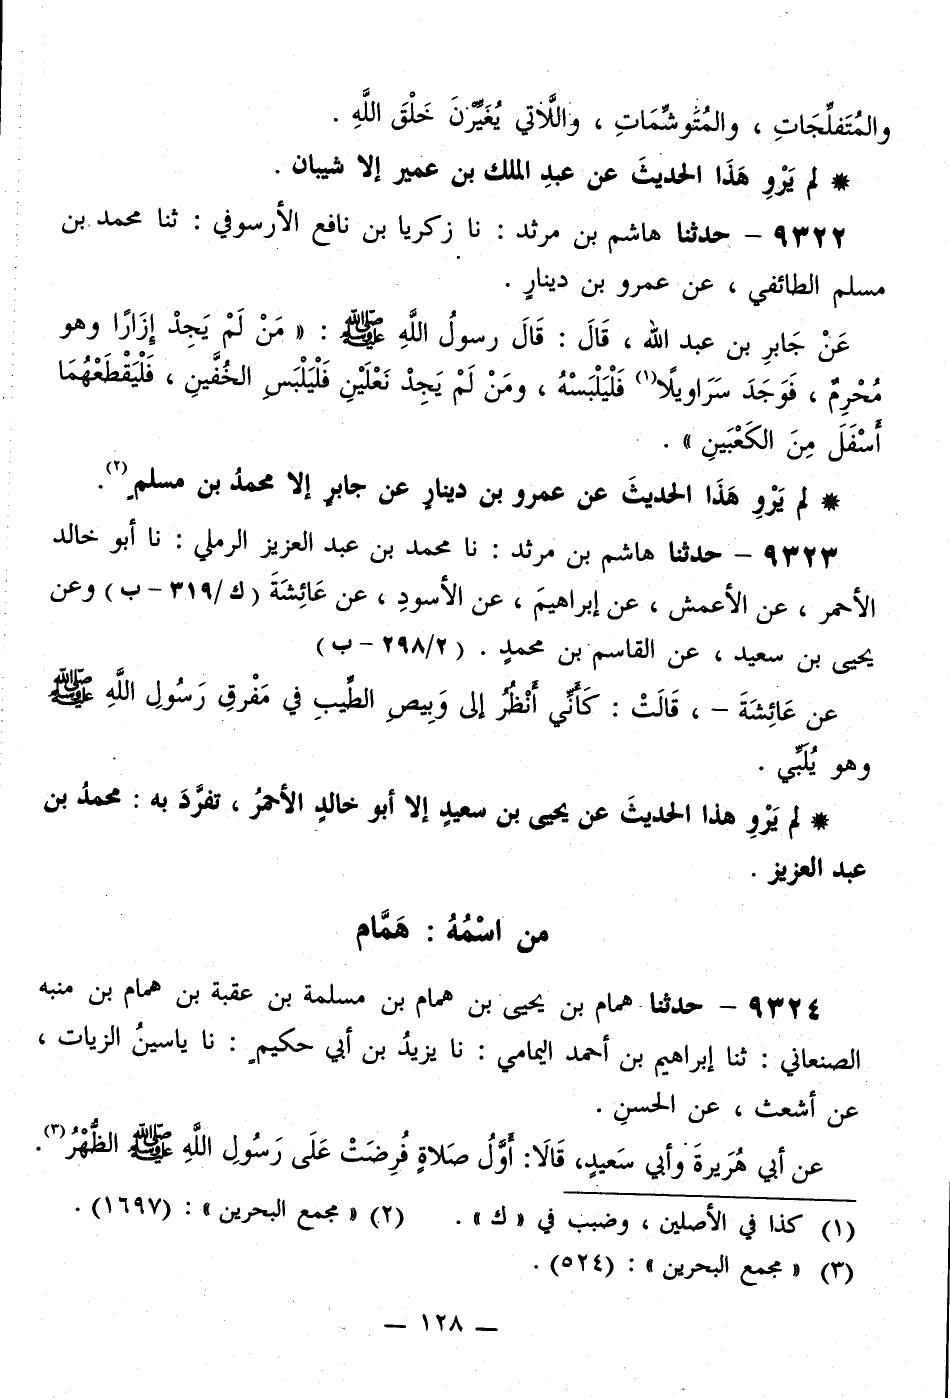 والمُتَفلِّجَاتِ ، والمُتَوشِّمَاتِ ، واللَّاتي يُغَيِّرْنَ خَلْقَ اللَّهِ .
* لم يَرْوِ هَذَا الحديثَ عن عبدِ الملك بن عمير إلا شيبان .
٩٣٢٢ – حدثنا هاشم بن مرثد : نا زكريا بن نافع الأرسوفي : ثنا محمد بن
مسلم الطائفي ، عن عمرو بن دينارٍ .
عَنْ جَابرِ بن عبد الله ، قَالَ : قَالَ رسولُ اللَّهِ ﷺ : « مَنْ لَمْ يَجِدْ إِزَارًا وهو
مُحْرِمٌ ، فَوَجَدَ سَرَاويلًا(١) فَلْيَلْبَسْهُ ، ومَنْ لَمْ يَجِدْ نَعْلَيْنِ فَلْيَلْبَسِ الخُفَّينِ ، فَلْيَقْطَعْهُمَا
أَسْفَلَ مِنَ الكَعْبَينِ » .
* لم يَرْوِ هَذَا الحديثَ عن عمرو بن دينارٍ عن جابرٍ إلا محمدُ بن مسلمٍ(٢).
٩٣٢٣ – حدثنا هاشم بن مرثد : نا محمد بن عبد العزيز الرملي : نا أبو خالد
الأحمر ، عن الأعمش ، عن إبراهيمَ ، عن الأسودِ ، عن عَائِشَةَ (ك/٣١٩ – ب) وعن
يحيى بن سعيد ، عن القاسم بن محمدٍ . (٢٩٨/٢ – ب)
عن عَائِشَةَ – ، قَالَتْ : كَأَنِّي أَنْظُرُ إلى وَبِيصِ الطِّيبِ في مَفْرقِ رَسُولِ اللَّهِ ﷺ
وهو يُلَبِّي .
* لم يَرْوِ هذا الحديثَ عن يحيى بن سعيدٍ إلا أبو خالدٍ الأحمرُ ، تفرَّدَ به : محمدُ بن
عبد العزيز .
من اسْمُهُ : هَمَّام
٩٣٢٤ – حدثنا همام بن يحيى بن همام بن مسلمة بن عقبة بن همام بن منبه
الصنعاني : ثنا إبراهيم بن أحمد اليمامي : نا يزيدُ بن أبي حكيمٍ : نا ياسينُ الزيات ،
عن أشعث ، عن الحسنِ .
عن أبي هُرَيرةَ وأبي سَعيدٍ، قَالَا: أَوَّلُ صَلاةٍ فُرِضَتْ عَلَى رَسُولِ اللَّهِ ﷺ الظُّهْرُ(٣).
(١) كذا في الأصلين ، وضبب في « ك » . (٢) « مجمع البحرين » : (١٦٩٧) .
(٣) « مجمع البحرين » : (٥٢٤) .
– ١٢٨ –